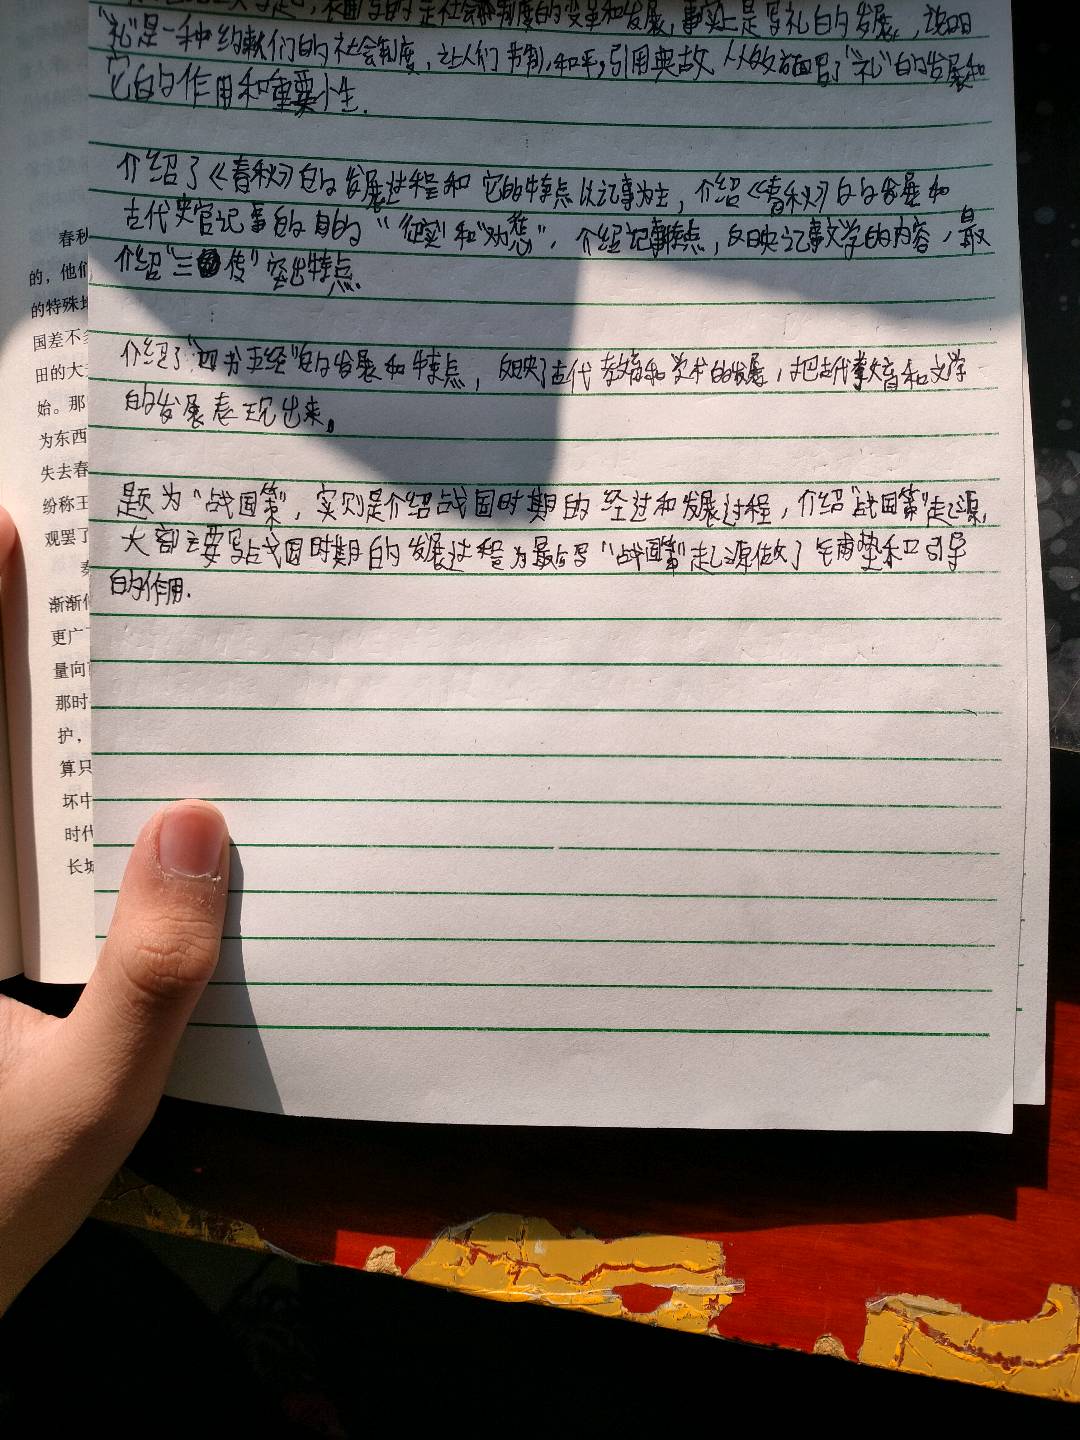 表面写的是社会制度的变革和发展,事实上是写礼的发展,说明
"礼"是一种约束人们的社会制度,让人们节制,和平,引用典故从效方面写了"礼"的发展和
它的作用和重要小生.
介绍了《春秋》的发展过程和它的特点以记事为主,介绍《春秋》的发展和
古代史官记事的目的"征实"和"劝惩",介绍记事特点,反映记事文学的内容,最
介绍"三传"突出特点.
介绍了"四书五经"的发展和特点,反映了古代教育和学术的发展,把古代教育和文学
的发展表现出来。
题为"战国策",实则是介绍战国时期的经过和发展过程,介绍"战国策"起源,
大部主要写战国时期的发展过程为最后写"战国策"起源做了铺垫和引导
的作用.
春秋
的,他们
的特殊地
国差不多
田的大
始。那
为东西
失去春
纷称王
观罢了
渐渐
更广
量向
那时
护,
算只
坏中
时代
长城